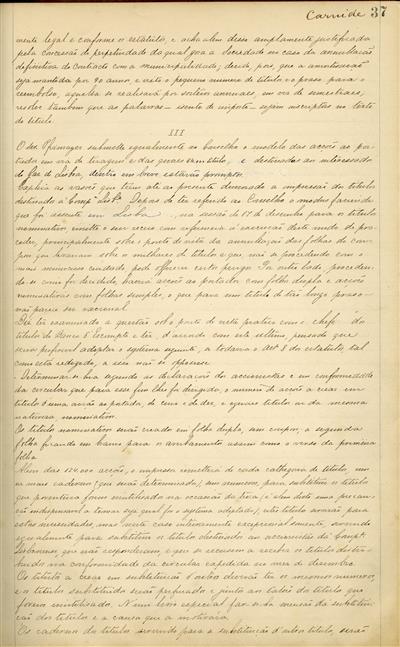 Carnide 37
mente legal e conforme o estatuto, e acha alem disso amplamente justificada
pela concessão de perpetuidade da qual goza a Sociedade no caso da annullação
definitiva do Contracto com a municipalidade; decide, pois, que a amortisação
seja mantida por 90 annos e visto o pequeno numero de titulos e o praso para o
reembolso, aquella se realisará por sorteios annuaes, em vez de semestraes;
resolve tambem que as palavras — isento de imposto — sejam inscriptas no texto
do titulo.
III
O snr. submette egualmente ao conselho o modelo das acções ao por-
tador em via de tiragem e das geraes sem titulo, e destinadas ao interessado
de Gaz de Lisboa, dentro em breve estarão promptos.
Explica as rasões que teem até ao presente demorado a impressão dos titulos
destinados á Depois de ter referido ao Conselho o modo
que foi assente em Lisboa, na sessão de 17 de dezembro para os titulos
nominativos, emitte o seu receio com referencia á execução deste modo de pro-
ceder, principalmente sobre o ponto de vista da annullação das folhas de cou-
pons que haveriam sobre os milhares de titulos e que, não se procedendo com o
mais minucioso cuidado pode offerecer certo perigo. Por outro lado, proceden-
do-se como foi decidido, haverá acções ao portador com folha dupla e acções
nominativas com folhas simples, o que para um titulo de tão longo praso
não parece ser racional.
Por ter examinado a questão sob o ponto de vista pratico com o chefe do
titulo do e ter, d'accordo com este ultimo, pensado que
seria preferivel adoptar o systema seguinte, a todavia o Art. 8 do estatuto, tal
como está redigido, a isso não se oppuzesse.
Determinar-se-hia segundo as declarações dos accionistas e em conformidade
da circular que para esse fim lhe foi dirigida, o numero de acções a crear em
titulos d'uma acção ao portador, de cinco e de dez, e eguaes titulos ou da mesma
natureza nominativos.
Os titulos nominativos serão creados em folha dupla, sem coupons, a segunda
folha ficando em branco para os averbamentos assim como o verso da primeira
folha.
Alem das 124.000 acções, o impressor remetterá de cada cathegoria de titulos, um
ou mais cadernos (que serão determinados), sem numeros, para substituir os titulos
que porventura forem inutilisados na occasião da troca (é alem disto uma precau-
ção indispensavel a tomar seja qual for o systema adoptado); estes titulos servirão para
estas necessidades, mas neste caso inteiramente excepcional somente, servindo
egualmente para substituir os titulos destinados ao accionista da Compª
Lisbonense, que não responderam, e que se recusem a receber os titulos destri-
buidos na conformidade da circular expedida no mez de dezembro.
Os titulos a crear em substituição d'outros deverão ter os mesmos numeros,
e os titulos substituidos serão perfurados e juntos aos talões dos titulos que
forem inutilisados. N'um livro especial far-se-ha menção da substitui-
ção dos titulos e a causa que a motivára.
Os cadernos dos titulos servindo para a substituição d'outros titulos, serão